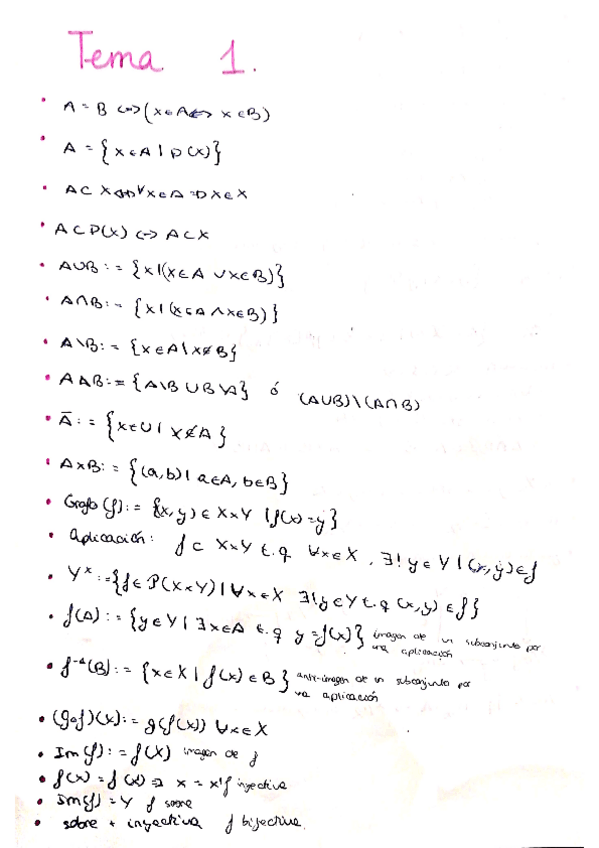 Tema 1.
• A = B ↔ (x∈A ↔ x∈B)
• A = {x∈A | P(x)}
• A⊂X ⇔ ∀x∈A ⇒ x∈X
• A⊂P(X) ↔ A⊂X
• A∪B := {x|(x∈A ∨ x∈B)}
• A∩B := {x|(x∈A ∧ x∈B)}
• A\B := {x∈A | x∉B}
• A∆B := {A\B ∪ B\A} ó (A∪B)\(A∩B)
• Ā := {x∈U | x∉A}
• A×B := {(a,b) | a∈A, b∈B}
• Grafo (f) := {(x,y) ∈ X×Y | f(x) = y}
• aplicación: f ⊂ X×Y t.q ∀x∈X, ∃! y∈Y | (x,y)∈f
• Yˣ := {f∈P(X×Y) | ∀x∈X ∃! y∈Y t.q (x,y)∈f}
• f(A) := {y∈Y | ∃x∈A t.q y = f(x)} imagen de un subconjunto por
una aplicación
• f⁻¹(B) := {x∈X | f(x)∈B} anti-imagen de un subconjunto por
una aplicación
• (g∘f)(x) := g(f(x)) ∀x∈X
• Im(f) := f(X) imagen de f
• f(x) = f(x') ⇒ x = x' f inyectiva
• Im(f) = Y f sobre
• sobre + inyectiva f bijectiva.